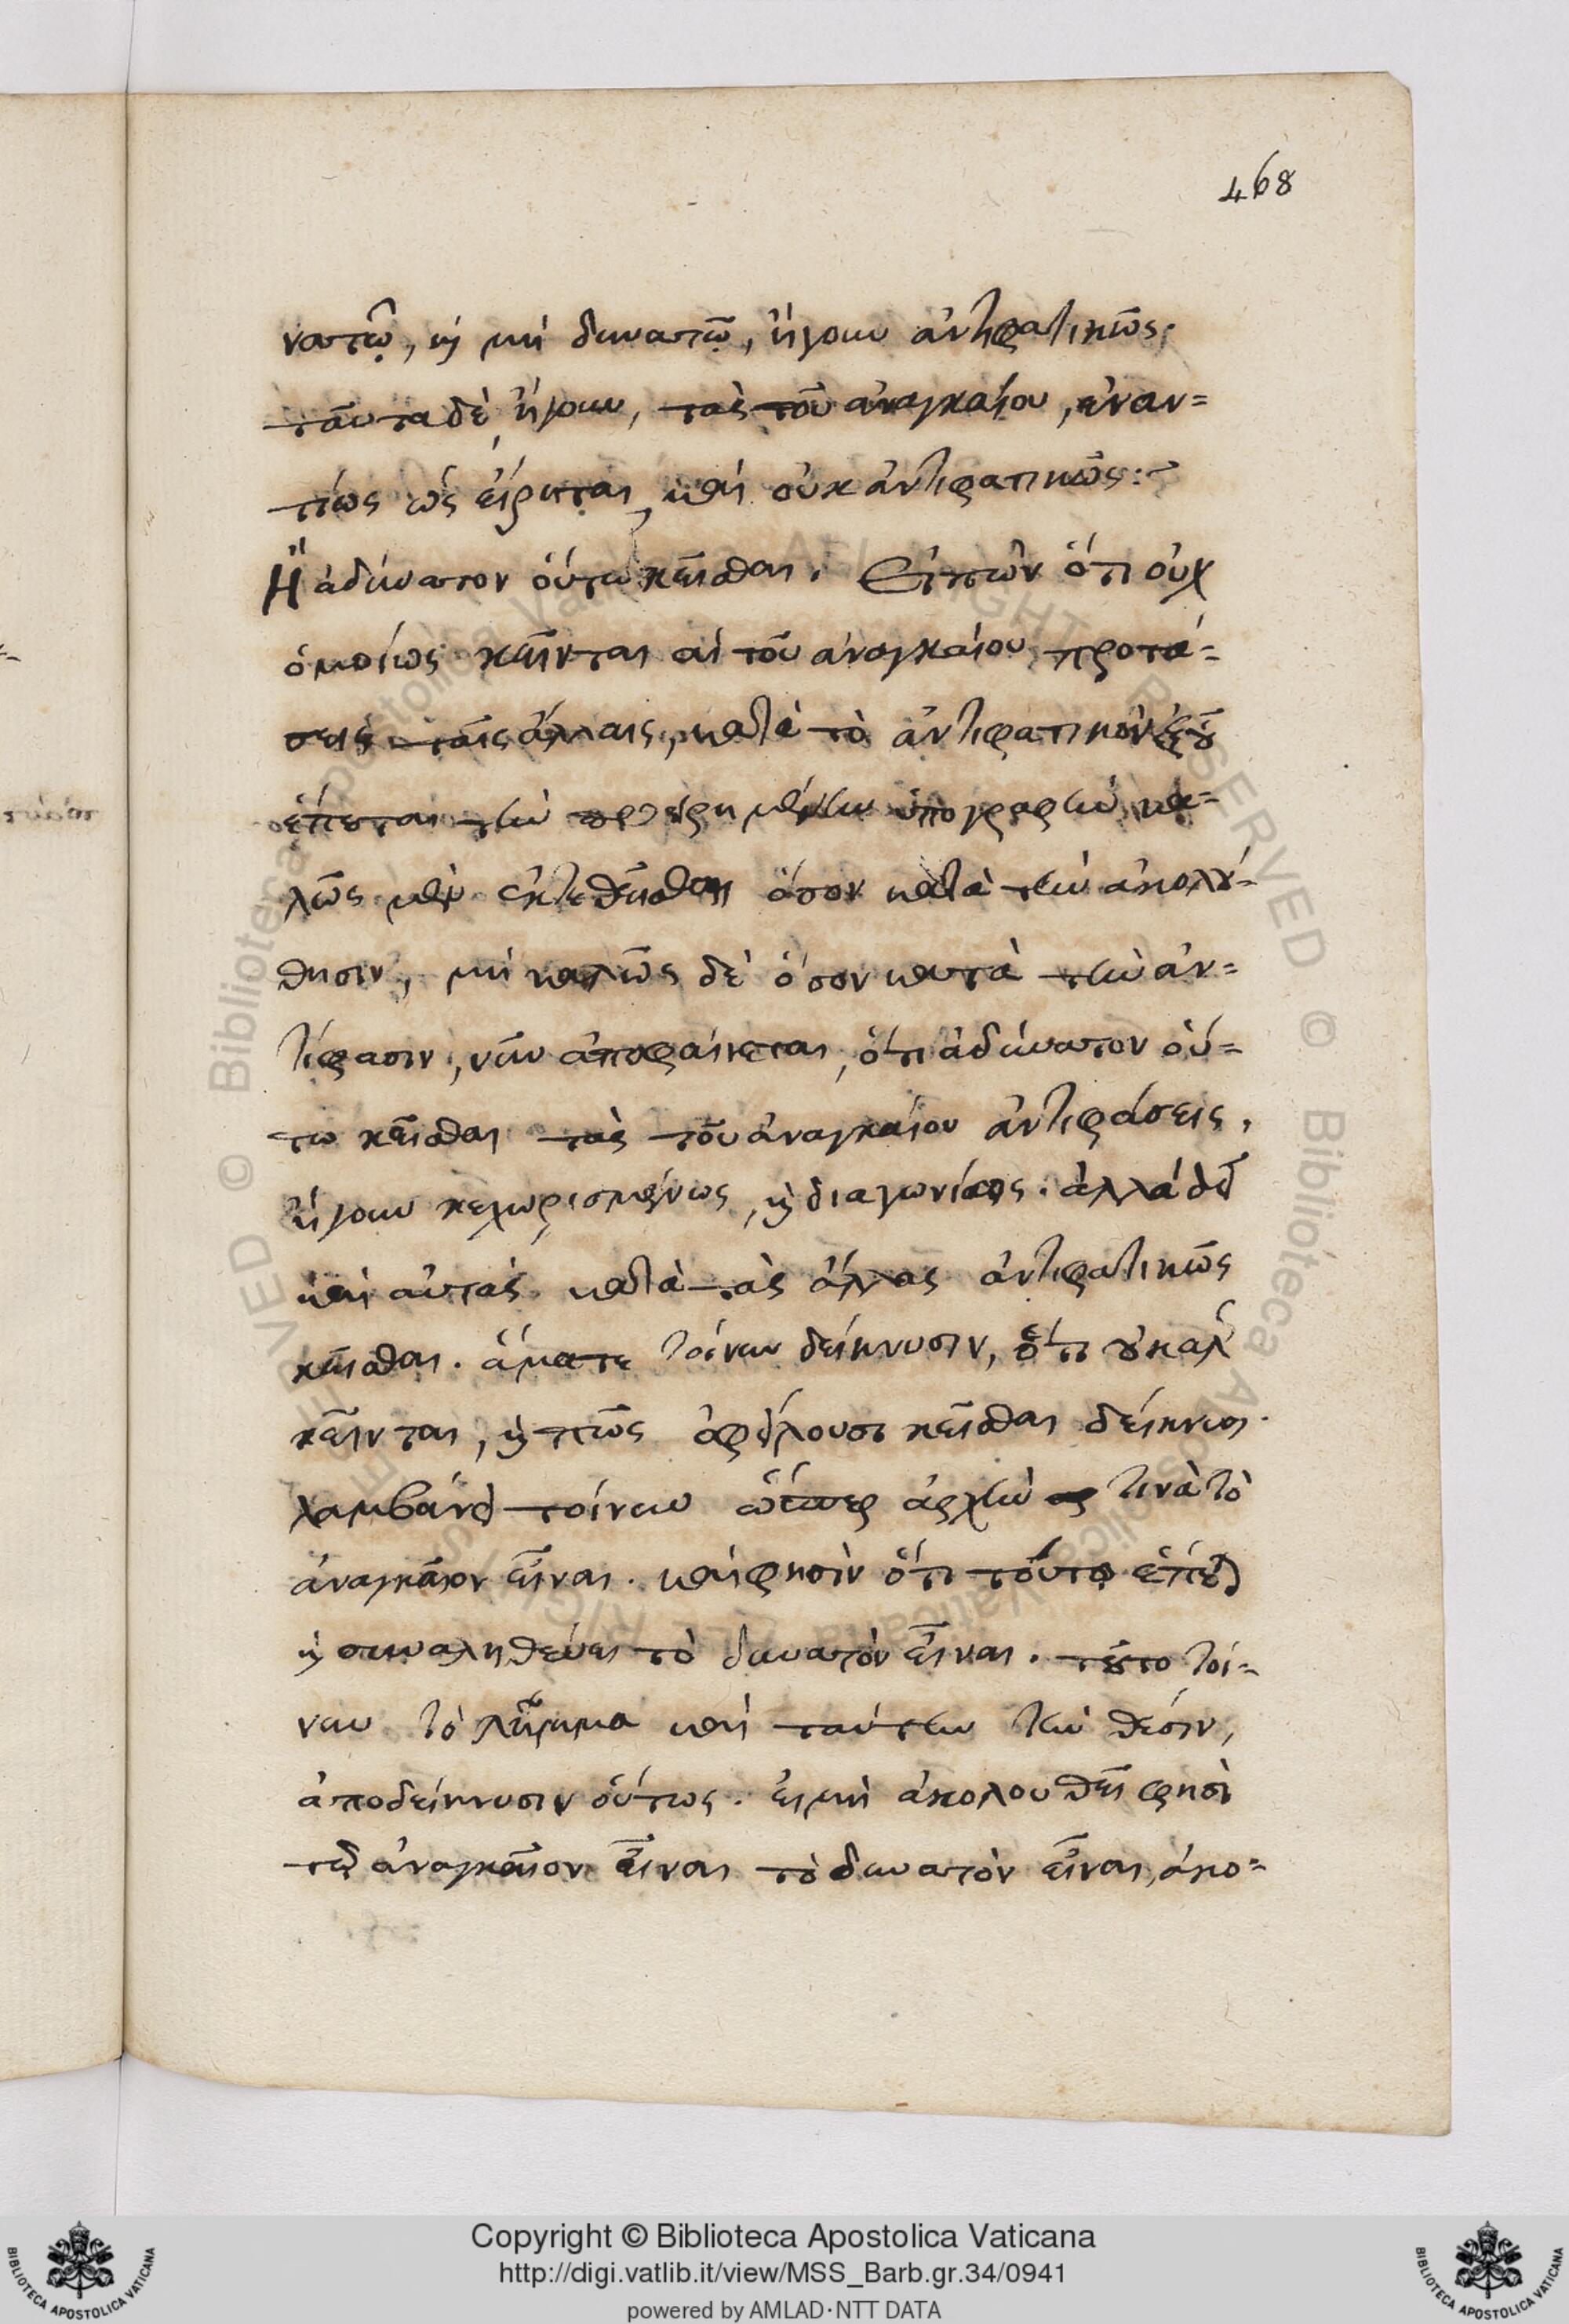 468
νατῷ, καὶ μὴ δυνατῷ, ἤγουν ἀντιφατικῶς.
ταῦτα δὲ ἤγουν, τὰς τοῦ ἀναγκαίου, ἐναν=
τίως ὡς εἴρηται καὶ οὐκ ἀντιφατικῶς:~
Ἢ ἀδύνατον οὕτω κεῖσθαι. Εἰπὼν ὅτι οὐχ
ὁμοίως κεῖνται αἱ τοῦ ἀναγκαίου προτά=
σεις ταῖς ἄλλαις, κατὰ τὸ ἀντιφατικὸν
ἕπεται τὴν προειρημένην ὑπογραφὴν κα=
λῶς μὲν ἐκτεθεῖσθαι ὅσον κατὰ τὴν ἀκολού=
θησιν, μὴ καλῶς δὲ ὅσον κατὰ τὴν ἀν=
τίφασιν, νῦν ἀποφαίνεται, ὅτι ἀδύνατον οὕ=
τω κεῖσθαι τὰς τοῦ ἀναγκαίου ἀντιφάσεις,
ἤγουν κεχωρισμένως, καὶ διαγωνίως. ἀλλὰ δεῖ
καὶ αὐτὰς κατὰ τὰς ἄλλας ἀντιφατικῶς
κεῖσθαι. ἅμα τε τοίνυν δείκνυσιν, ὅτι οὐ καλῶς
κεῖνται, καὶ πῶς ὀφείλουσι κεῖσθαι δείκνυσι.
λαμβάνει τοίνυν ὥσπερ ἀρχὴν τινὰ τὸ
ἀναγκαῖον εἶναι. καὶ φησὶν ὅτι τούτῳ ἕπεται
καὶ συναληθεύει τὸ δυνατὸν εἶναι. τοῦτο τοί=
νυν τὸ λῆμμα καὶ ταύτην τὴν θέσιν,
ἀποδείκνυσιν οὕτως. εἰ μὴ ἀκολουθεῖ φησὶ
τῷ ἀναγκαῖον εἶναι τὸ δυνατὸν εἶναι, ἀκο=
Copyright © Biblioteca Apostolica Vaticana
http://digi.vatlib.it/view/MSS_Barb.gr.34/0941
powered by AMLAD·NTT DATA